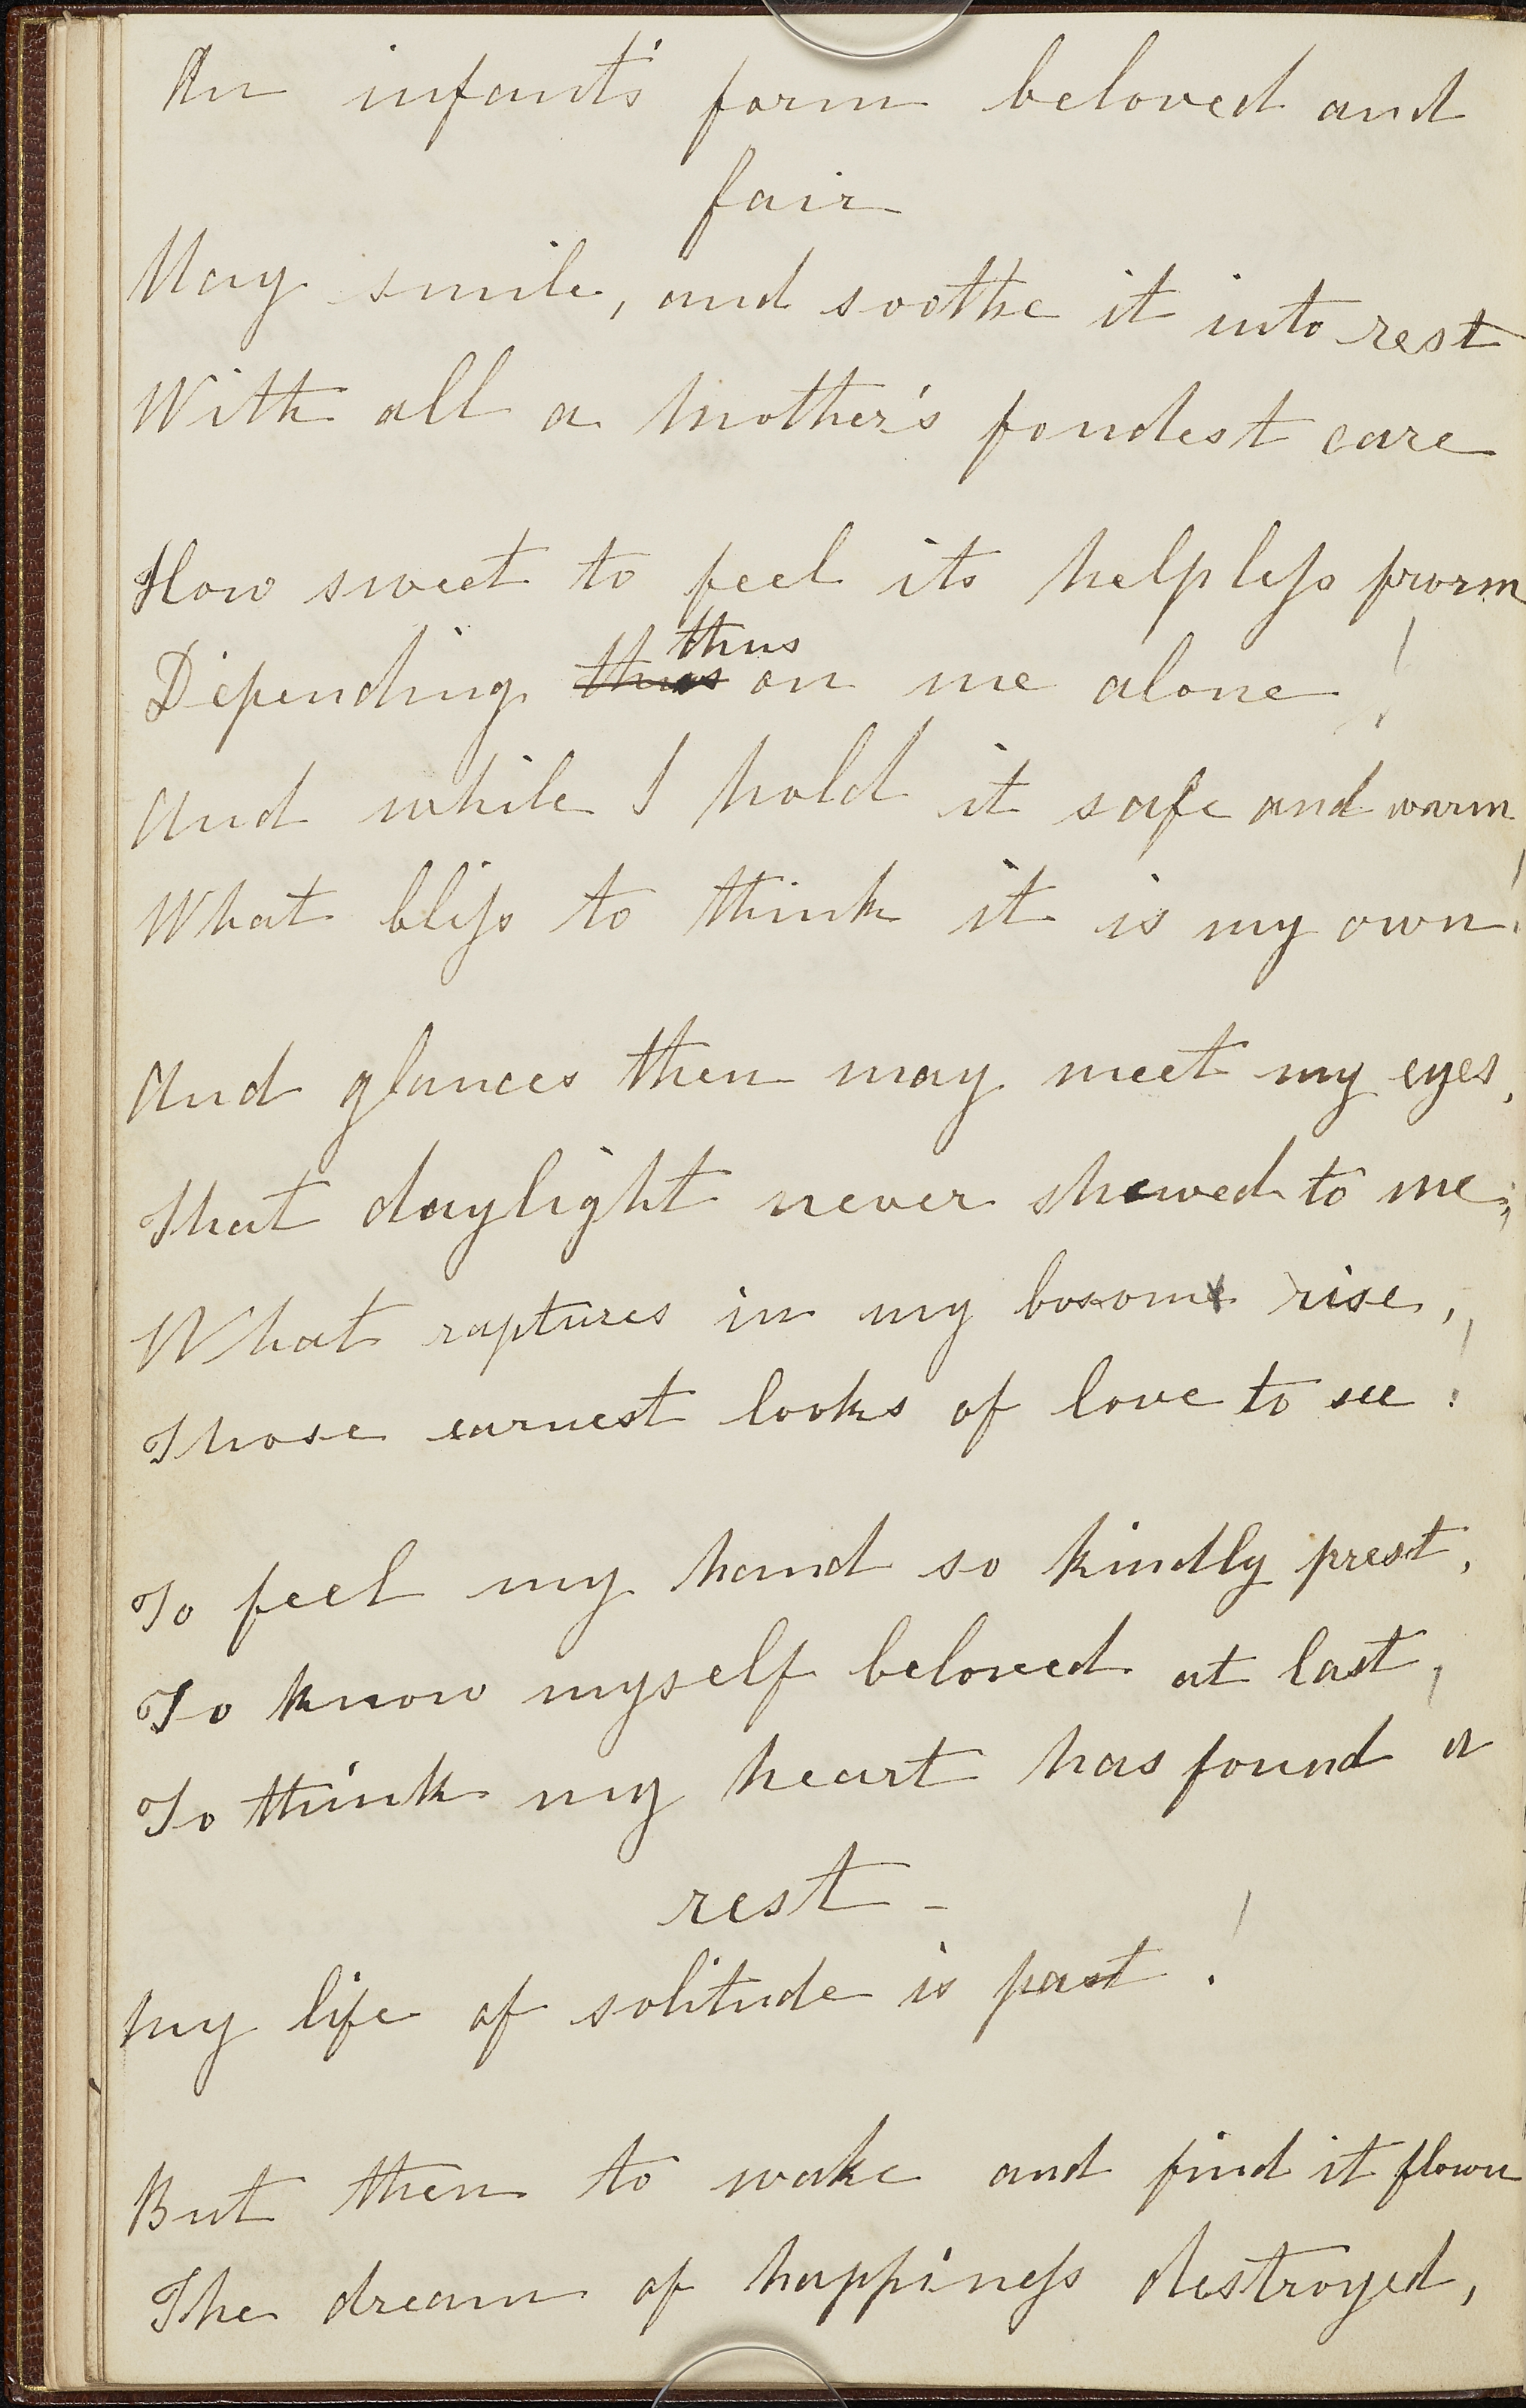 An infant's form beloved and
fair
May smile, and soothe it into rest
With all a Mother's fondest care
How sweet to feel its helpless form
thus
Depending thus on me alone!
And while I hold it safe and warm
What bliss to think it is my own!
And glances then may meet my eyes,
That daylight never shewed to me;
What raptures in my bosom rise,
Those earnest looks of love to see!
To feel my hand so kindly prest,
To know myself beloved at last,
To think my heart has found a
rest -
My life of solitude is past!
But then to wake and find it flown
The dream of happiness destroyed,